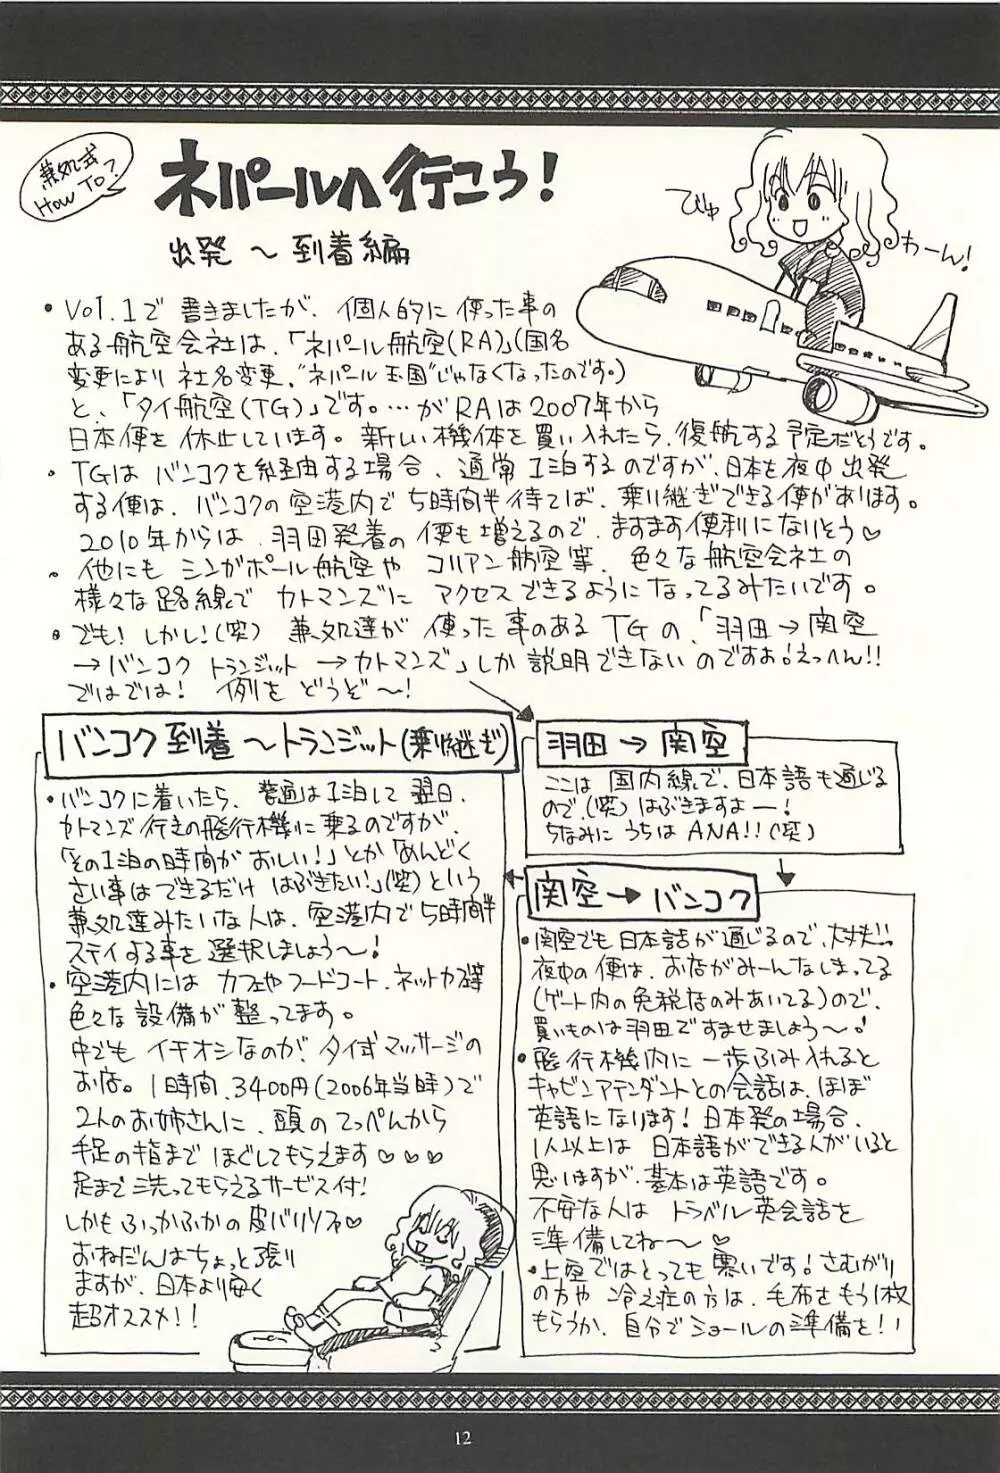 兼処式
HOW TO?
ネパールへ行こう!
出発 〜 到着編
びゅ
わーん!
• Vol.1で 書きましたが、個人的に 使った事の
ある航空会社は、「ネパール航空(RA)」(国名
変更により 社名変更。"ネパール王国"じゃなくなったのです。)
と、「タイ航空(TG)」です。…がRAは2007年から
日本便を 休止しています。新しい機体を買い入れたら、復航する予定だそうです。
• TGは バンコクを経由する場合、通常 1泊するのですが、日本を夜中出発
する便は、バンコクの空港内で 5時間半待てば、乗り継ぎできる便があります。
2010年からは、羽田発着の便も増えるので、ますます便利になりそう♡
• 他にも シンガポール航空や コリアン航空等、色々な航空会社の
様々な路線で カトマンズに アクセスできるようになってるみたいです。
• でも!しかし!(笑) 兼処達が 使った事のあるTGの、「羽田→関空
→バンコク トランジット →カトマンズ」しか説明できないのですお!えっへん!!
ではでは! 例を どうぞ〜!
羽田 → 関空
ここは 国内線で、日本語も通じる
ので、(笑) はぶきますよー!
ちなみに うちは ANA!!(笑)
関空 → バンコク
• 関空でも 日本語が通じるので、大丈夫!!
夜中の便は、お店がみーんなしまってる
(ゲート内の免税店のみあいてる)ので、
買いものは羽田ですませましょう〜!
• 飛行機内に 一歩ふみ入れると
キャビンアテンダントとの会話は、ほぼ
英語になります!日本発の場合、
1人以上は 日本語ができる人がいると
思いますが、基本は英語です。
不安な人は トラベル英会話を
準備してね〜♡
• 上空ではとっても寒いです!さむがり
の方や 冷え症の方は、毛布をもう1枚
もらうか、自分でショールの準備を!!
バンコク到着 〜トランジット(乗り継ぎ)
• バンコクに着いたら、普通は1泊して 翌日、
カトマンズ行きの飛行機に乗るのですが、
「その1泊の時間がおしい!」とか「めんどく
さい事はできるだけ はぶきたい!」(笑)という
兼処達みたいな人は、空港内で5時間半
ステイする事を選択しましょう〜!
• 空港内には カフェやフードコート、ネットカフェ等
色々な設備が整ってます。
中でも イチオシなのが、タイ式マッサージの
お店。1時間、3400円(2006年当時)で
2人のお姉さんに、頭のてっぺんから
手足の指まで ほぐしてもらえます♡♡♡
足まで洗ってもらえるサービス付!
しかも ふっかふかの皮バリソファ♡
おねだんはちょっと張り
ますが、日本より安く
超オススメ!!
12